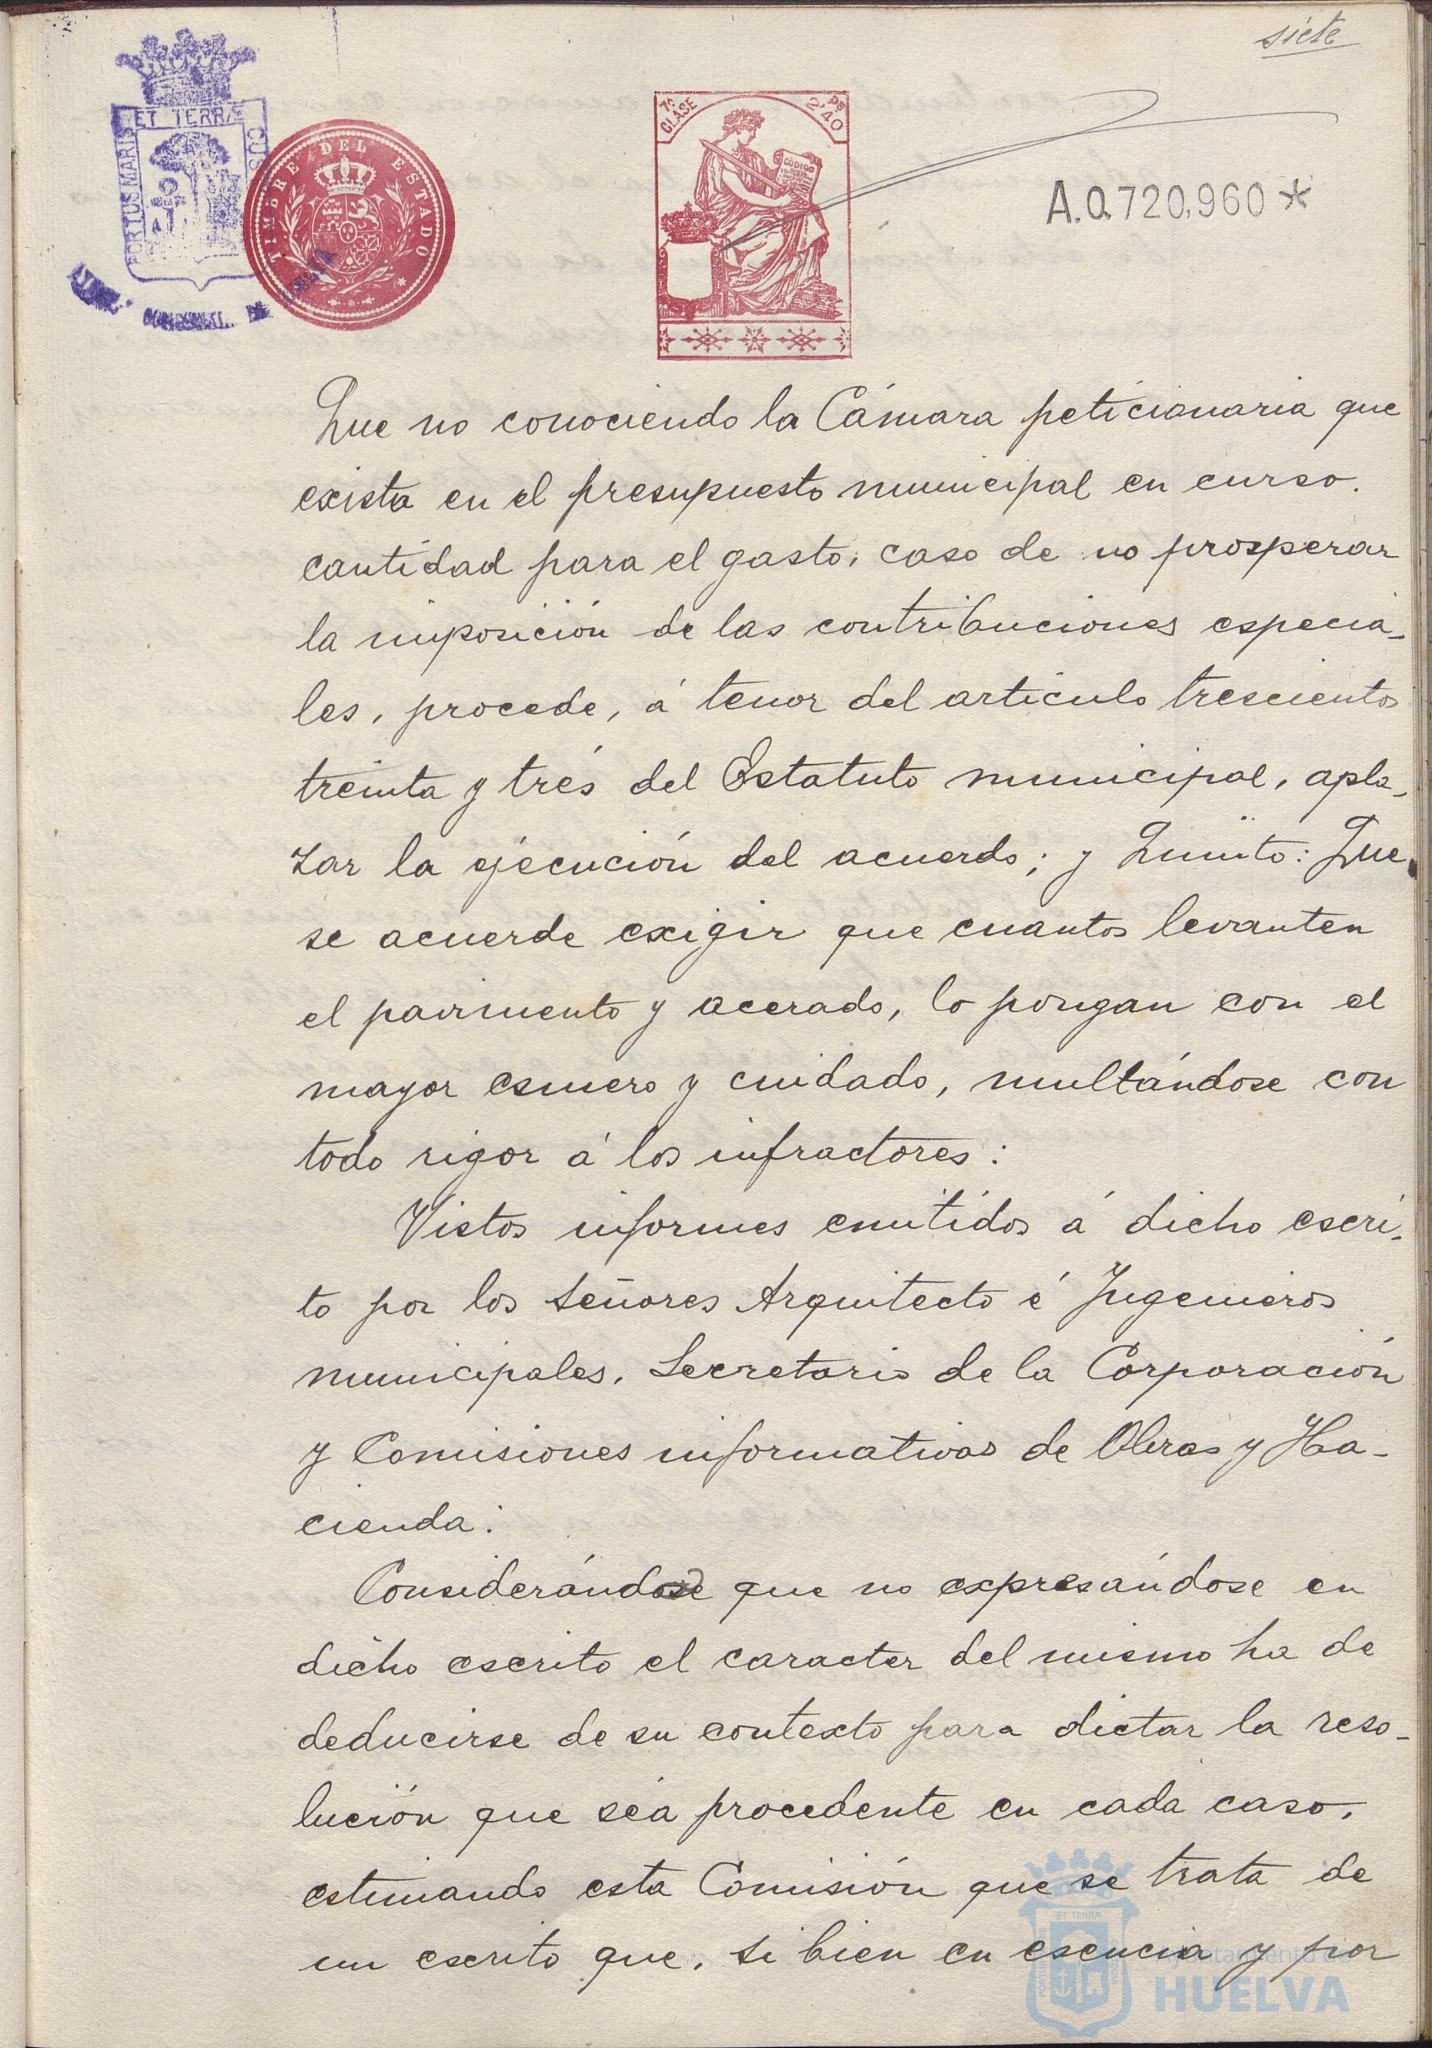 siete
PORTUS MARIS ET TERRÆ CUS
TIMBRE DEL ESTADO
7ª CLASE
2'40
CÓDIGO
A.0.720,960 *
CONSISTORIAL DE
Que no conociendo la Cámara peticionaria que
exista en el presupuesto municipal en curso.
cantidad para el gasto, caso de no prosperar
la imposición de las contribuciones especia-
les, procede, á tenor del articulo trescientos
treinta y trés del Estatuto municipal, apla-
zar la ejecución del acuerdo; y Quinto: Que
se acuerde exigir que cuantos levanten
el pavimento y acerado, lo pongan con el
mayor esmero y cuidado, multándose con
todo rigor á los infractores:
Vistos informes emitidos á dicho escri-
to por los Señores Arquitecto é Ingenieros
municipales, Secretario de la Corporación
y Comisiones informativas de Obras y Ha-
cienda:
Considerándose que no expresándose en
dicho escrito el caracter del mismo ha de
deducirse de su contexto para dictar la reso-
lución que séa procedente en cada caso,
estimando esta Comisión que se trata de
un escrito que, si bien en esencia y por
Ayuntamiento de
HUELVA